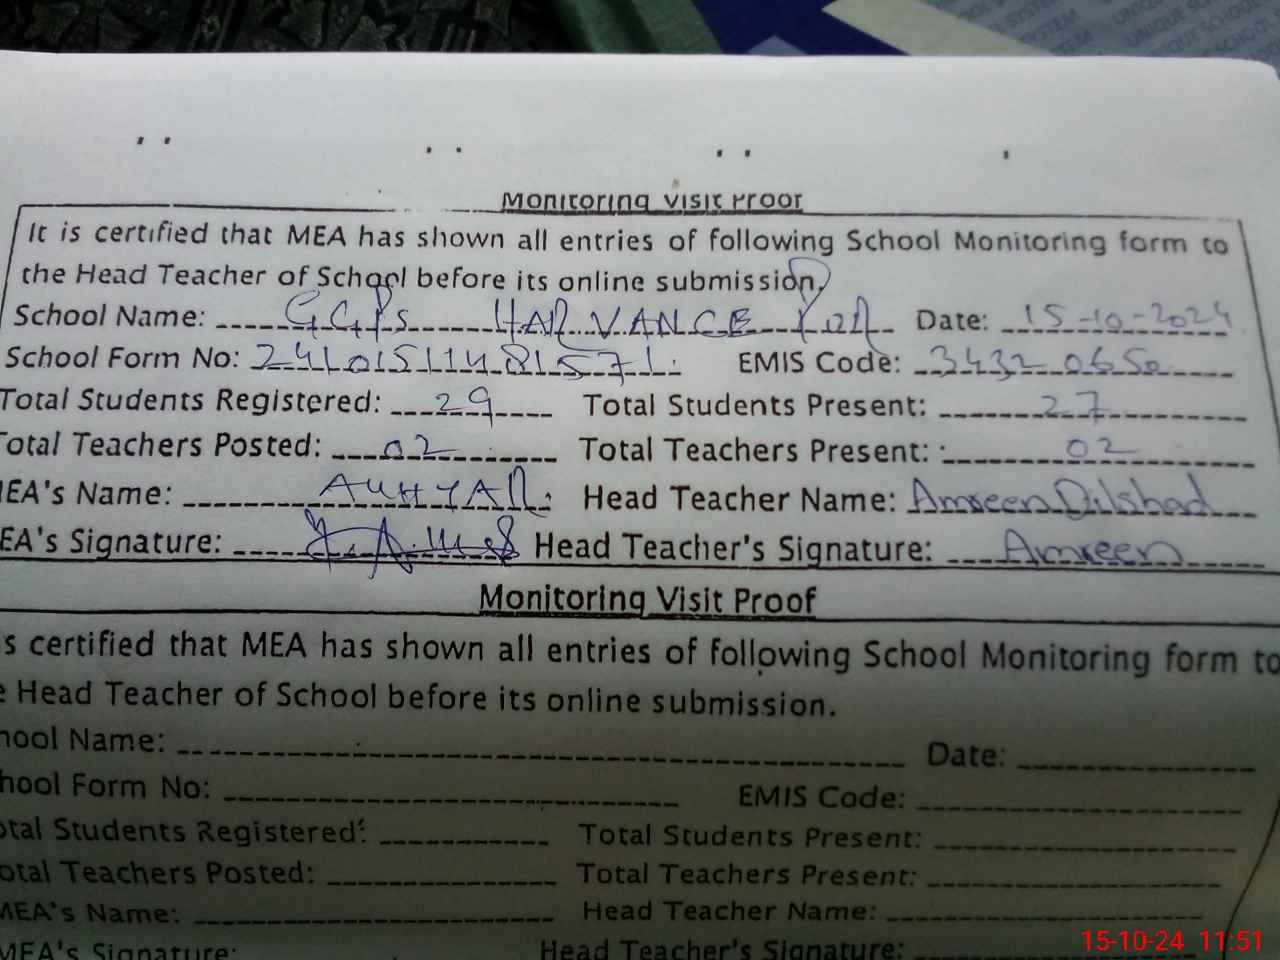 Monitoring Visit Proof
It is certified that MEA has shown all entries of following School Monitoring form to
the Head Teacher of School before its online submission.
School Name: GGPS HARVANCE POR Date: 15-10-2024
School Form No: 24101511481571 EMIS Code: 34320650
Total Students Registered: 29 Total Students Present: 27
Total Teachers Posted: 02 Total Teachers Present: 02
MEA's Name: Head Teacher Name: Amreen Dilshad
EA's Signature: Head Teacher's Signature: Amreen
Monitoring Visit Proof
s certified that MEA has shown all entries of following School Monitoring form to
e Head Teacher of School before its online submission.
hool Name: Date:
hool Form No: EMIS Code:
otal Students Registered: Total Students Present:
otal Teachers Posted: Total Teachers Present:
MEA's Name: Head Teacher Name:
MEA's Signature: Head Teacher's Signature:
15-10-24 11:51